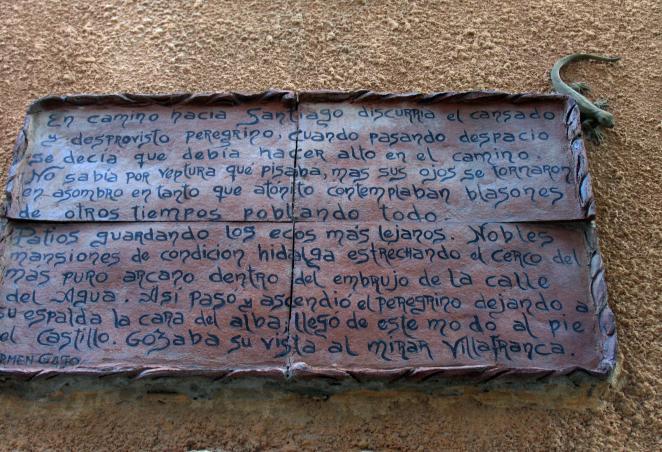 En camino hacia Santiago discurria el cansado
y desprovisto peregrino, cuando pasando despacio
se decía que debía hacer alto en el camino.
No sabía por ventura que pisaba, mas sus ojos se tornaron
en asombro en tanto que atónito contemplaban blasones
de otros tiempos poblando todo.
Patios guardando los ecos más lejanos. Nobles
mansiones de condición hidalga estrechando el cerco del
más puro arcano dentro del embrujo de la calle
del Agua. Así pasó y ascendió el peregrino dejando a
su espalda la cara del alba, llegó de este modo al pie
el Castillo. Gozaba su vista al mirar Villafranca.
RMEN GAGO